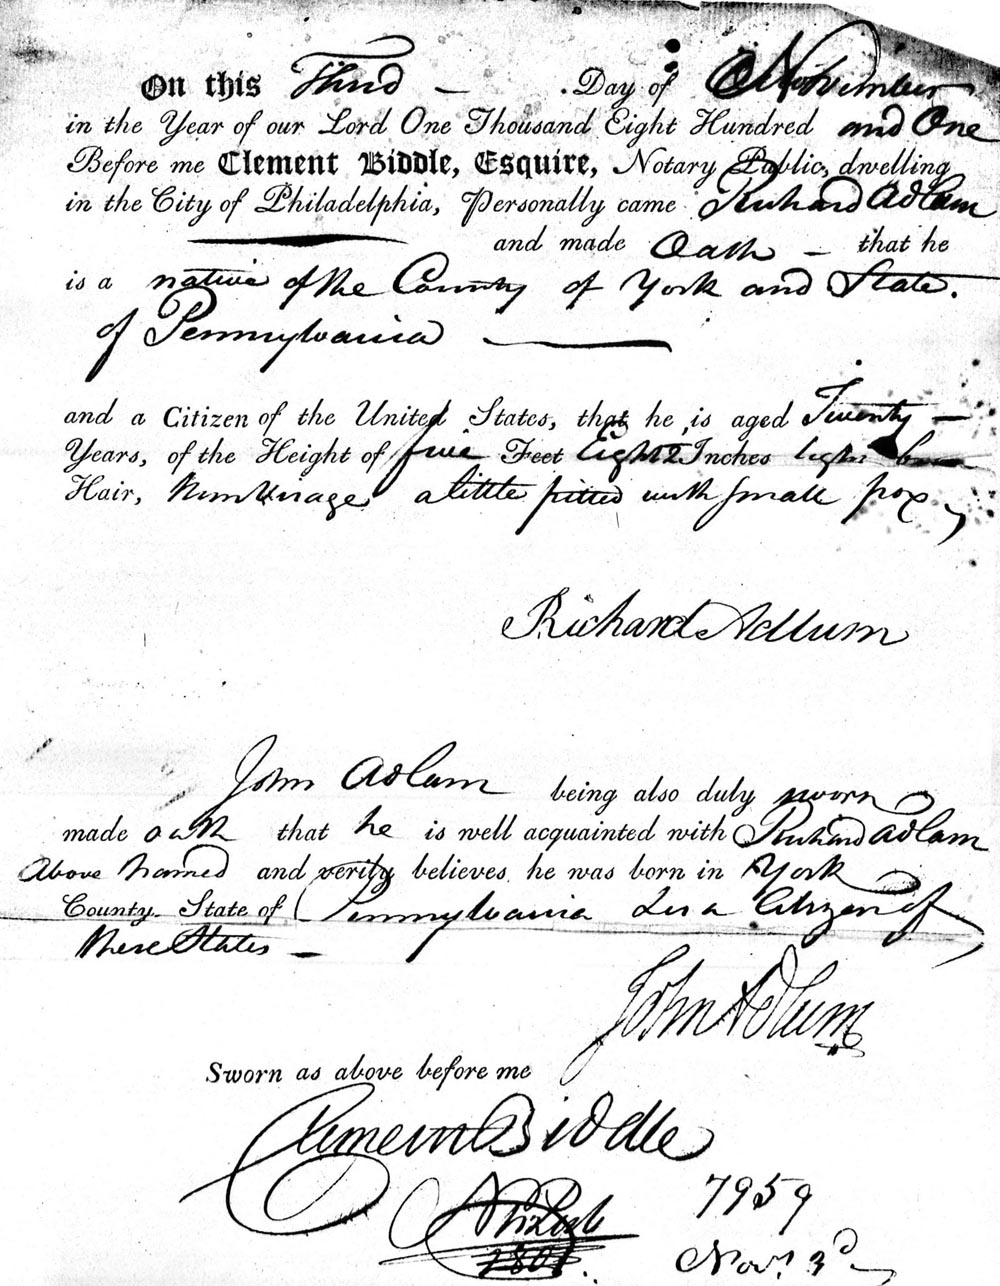 On this Third — . Day of November
in the Year of our Lord One Thousand Eight Hundred and One
Before me Clement Biddle, Esquire, Notary Public, dwelling
in the City of Philadelphia, Personally came Richard Adlam
and made Oath — that he
is a native of the County of York and State.
of Pennsylvania —
and a Citizen of the United States, that he is aged Twenty —
Years, of the Height of five Feet Eight Inches light
Hair, a little pitted with small pox,
Richard Adlum
John Adlam being also duly sworn
made oath that he is well acquainted with Richard Adlam
Above named and verily believes he was born in York
County State of Pennsylvania & is a Citizen of
these States —
John Adlum
Sworn as above before me
Clement Biddle
Not Pub
1801.
7959
Novr 3d